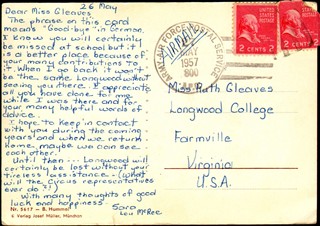 26 May
Dear Miss Gleaves,
The phrase on this card
means "Good-bye" in German.
I know you will certainly
be missed at school but it
is a better place because of
your many contributions to
it. When I go back it won't
be the same Longwood without
seeing you there. I appreciate
all you have done for me
while I was there and for
your many helpful words of
advice.
I hope to keep in contact
with you during the coming
years and when we return
home maybe we can see
each other!
Until then... Longwood will
certainly be lost without your
tireless assistance. (What
will the Circus representatives
ever do?!)
With many thoughts of good
luck and happiness
Sara
Lou McRee
Nr. 5617 — B. Hummel
© Verlag Josef Müller, München
VIA AIR
ARMY-AIR FORCE POSTAL SERVICE
MAY
1957
800
UNITED STATES POSTAGE
2 CENTS 2
2 CENTS 2
Miss Ruth Gleaves
Longwood College
Farmville
Virginia
U.S.A.